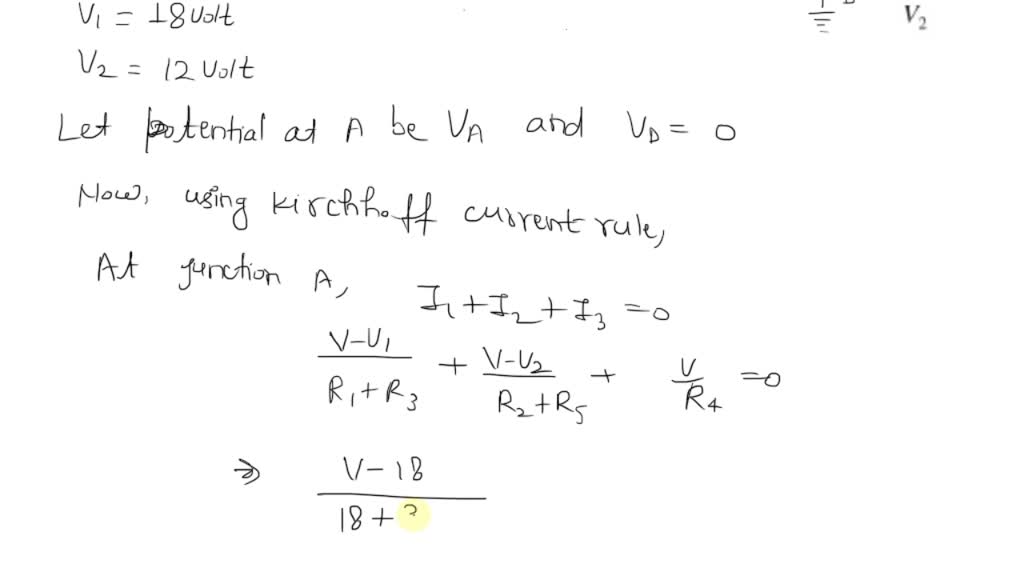 V1 = 18 volt
V2
V2 = 12 volt
Let potential at A be VA and VD = 0
Now, using kirchhoff current rule,
At junction A,
I1 + I2 + I3 = 0
V-V1/R1+R3 + V-V2/R2+R5 + V/R4 = 0
⇒ V-18/18+